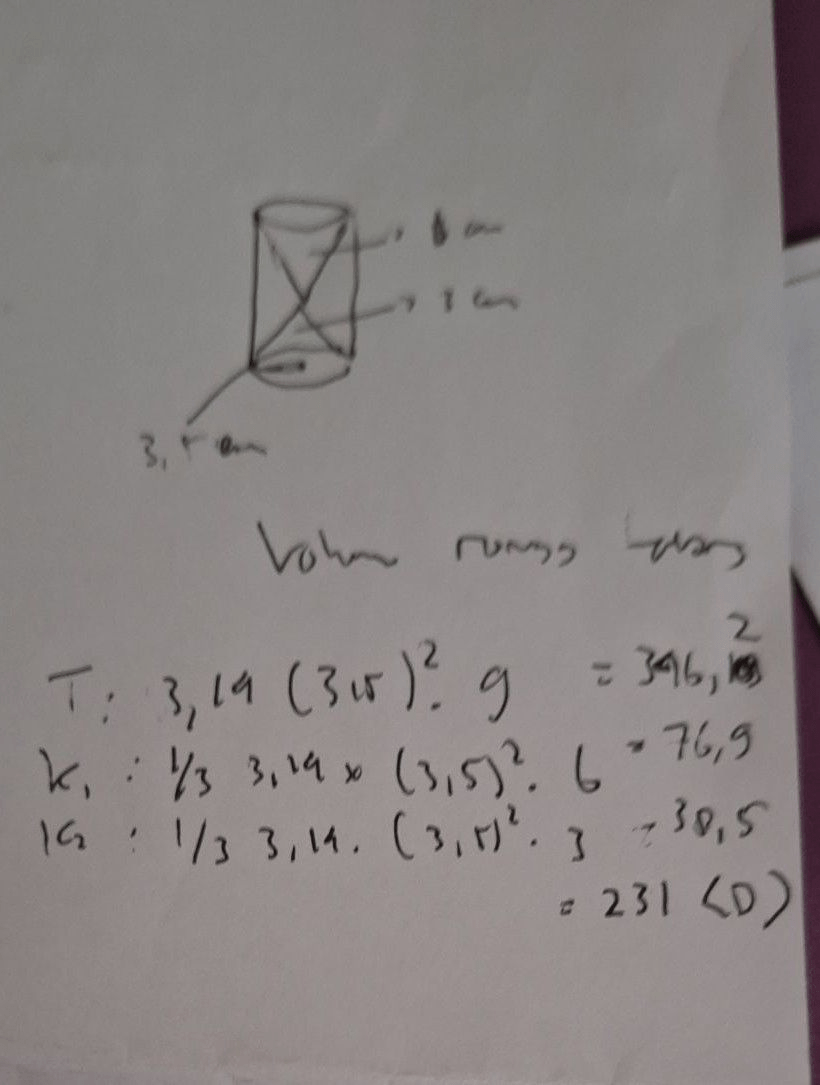 6 cm
3 cm
3,5 cm
Volum ruang
T: 3,14 (3,5)². 9 = 346,2
K₁ : 1/3 3,14 x (3,5)². 6 = 76,9
K₂ : 1/3 3,14. (3,5)². 3 = 38,5
= 231 (D)